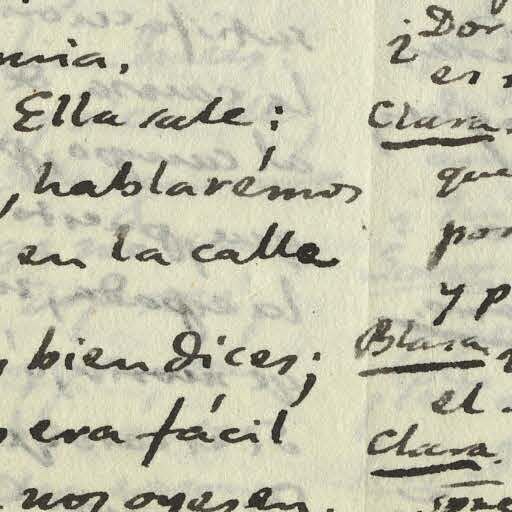 Ella sale;
, hablarémos
en la calle
bien dices;
era fácil
nos oyesen.
¿Don
es
Clara.
que
por
y p
Blasa.
el
Clara.